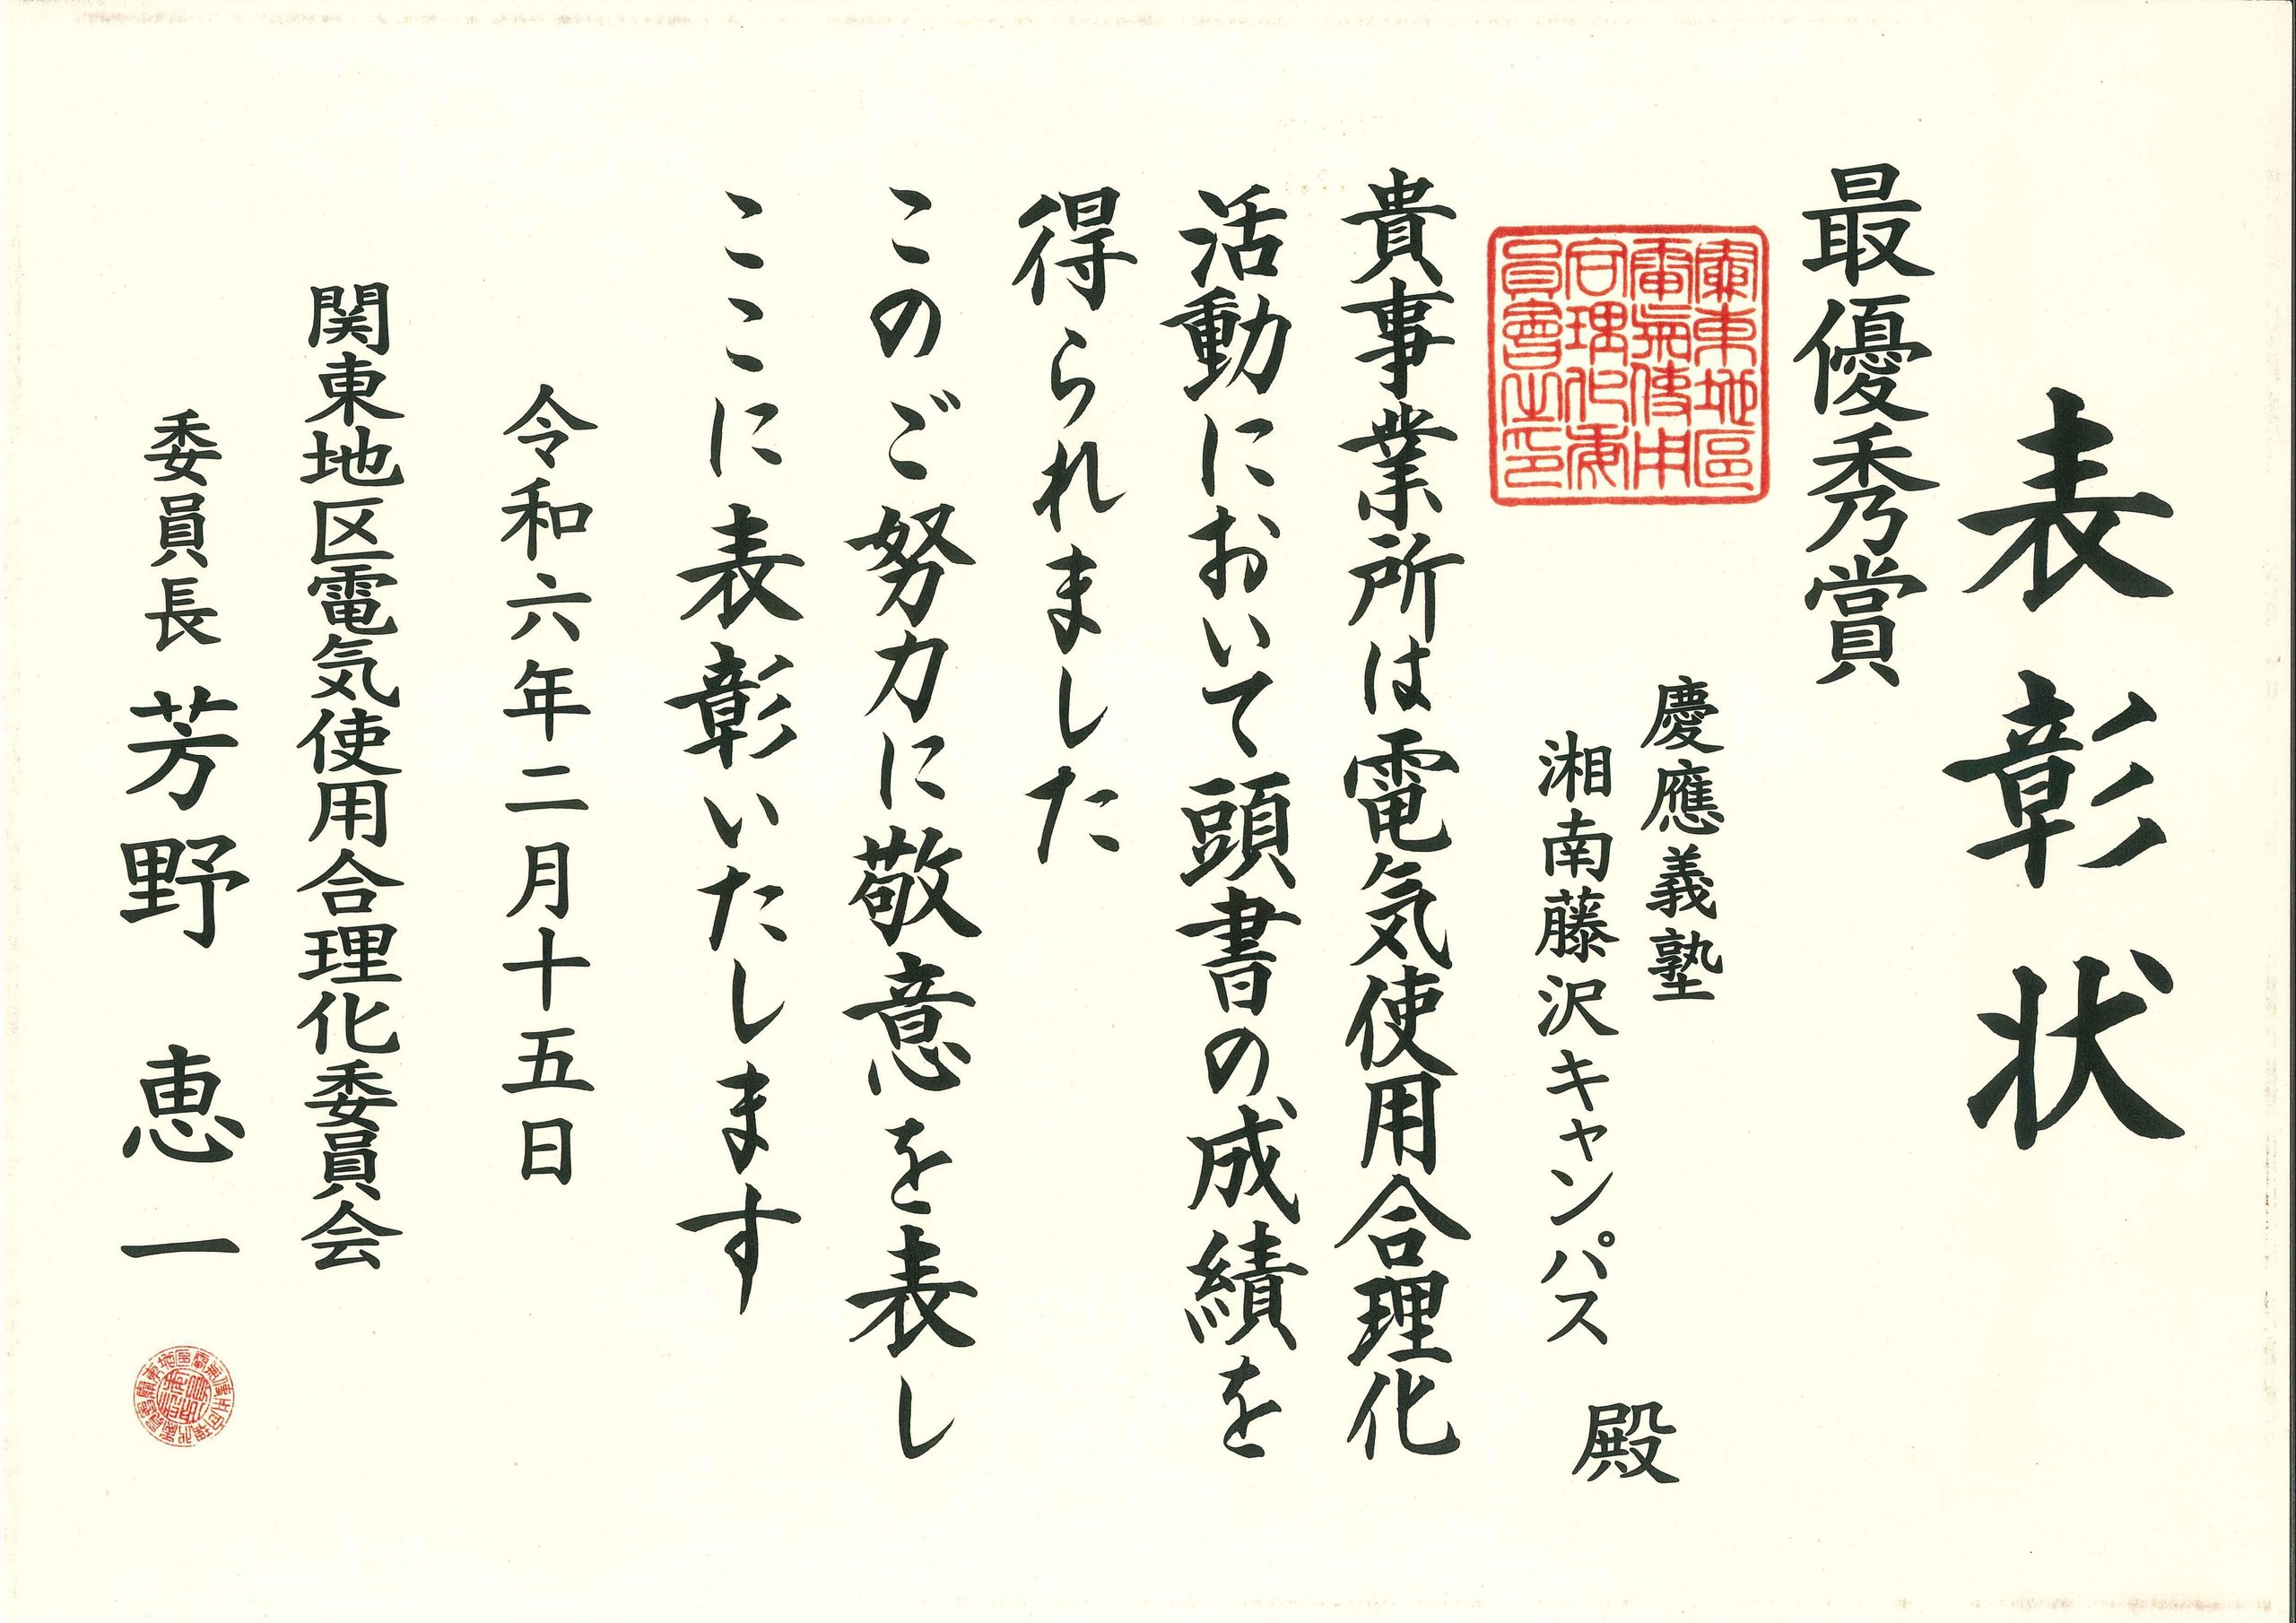 表彰状
最優秀賞
慶應義塾
湘南藤沢キャンパス
殿
貴事業所は電気使用合理化
活動において頭書の成績を
得られました
このご努力に敬意を表し
ここに表彰いたします
令和六年二月十五日
関東地区電気使用合理化委員会
委員長 芳野 恵一
關東地區
電氣使用
合理化委
員會之印